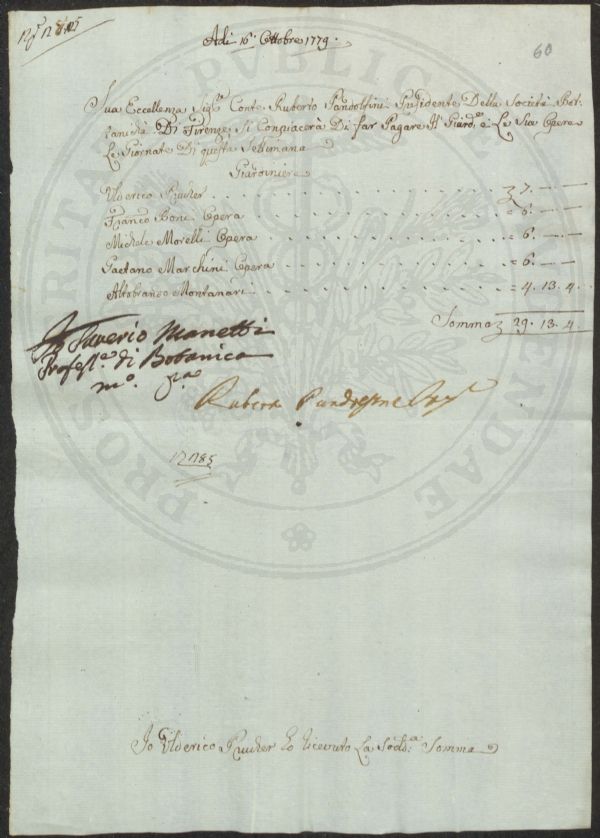 Adi 16. Ottobre 1779.
60
Sua Eccellenza Sig.r Conte Ruberto Pandolfini Presidente Della Società Bot-
tanicha Di Firenze Si Conpiacerà Di far Pagare Il Giard.e e Le Sue Opere
Le Giornate Di questa Settimana
Giardiniere
Ulderico . . . 7. — —
Franco Boni Opera . . . = 6. — —
Michele Morelli Opera . . . = 6. — —
Gaetano Marchini Opera . . . = 6. — —
Altobranco Montanari . . . = 4. 13. 4.
Somma 29. 13. 4
Saverio Manetti
Profess.e di Botanica
m.o
Ruberto Pandolfini
N 185
Io Ulderico ho riceuto La Sod.a Somma
PROSPERITATI PUBLICAE AUGENDAE